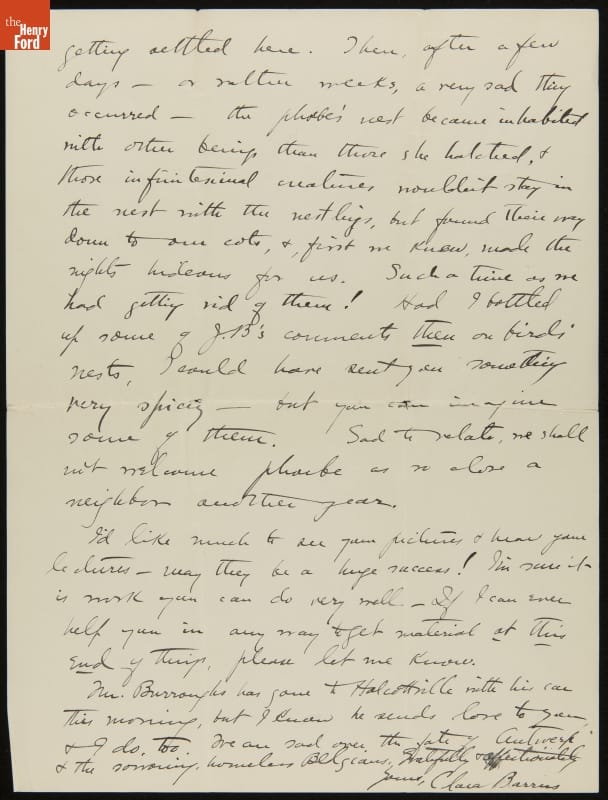 the
Henry
Ford
getting settled here. Then, after a few
days — or rather weeks, a very sad thing
occurred — the phoebe's nest became inhabited
with other beings than those she hatched, &
those infinitesimal creatures wouldn't stay in
the nest with the nestlings, but found their way
down to our cots, &, first we knew, made the
nights hideous for us. Such a time as we
had getting rid of them! Had I bottled
up some of J.B's comments then on birds'
nests, I could have sent you something
very spicy — but you can imagine
some of them. Sad to relate, we shall
not welcome phoebe as so close a
neighbor another year.
I'd like much to see your pictures & hear your
lectures — may they be a huge success! I'm sure it
is work you can do very well — If I can ever
help you in any way to get material at this
end of things, please let me know.
Mr. Burroughs has gone to Halcottville with his car
this morning, but I know he sends love to you,
& I do, too. We are sad over the fate of Antwerp
& the sorrowing, homeless Belgians. Gratefully & affectionately
yours, Clara Barrus